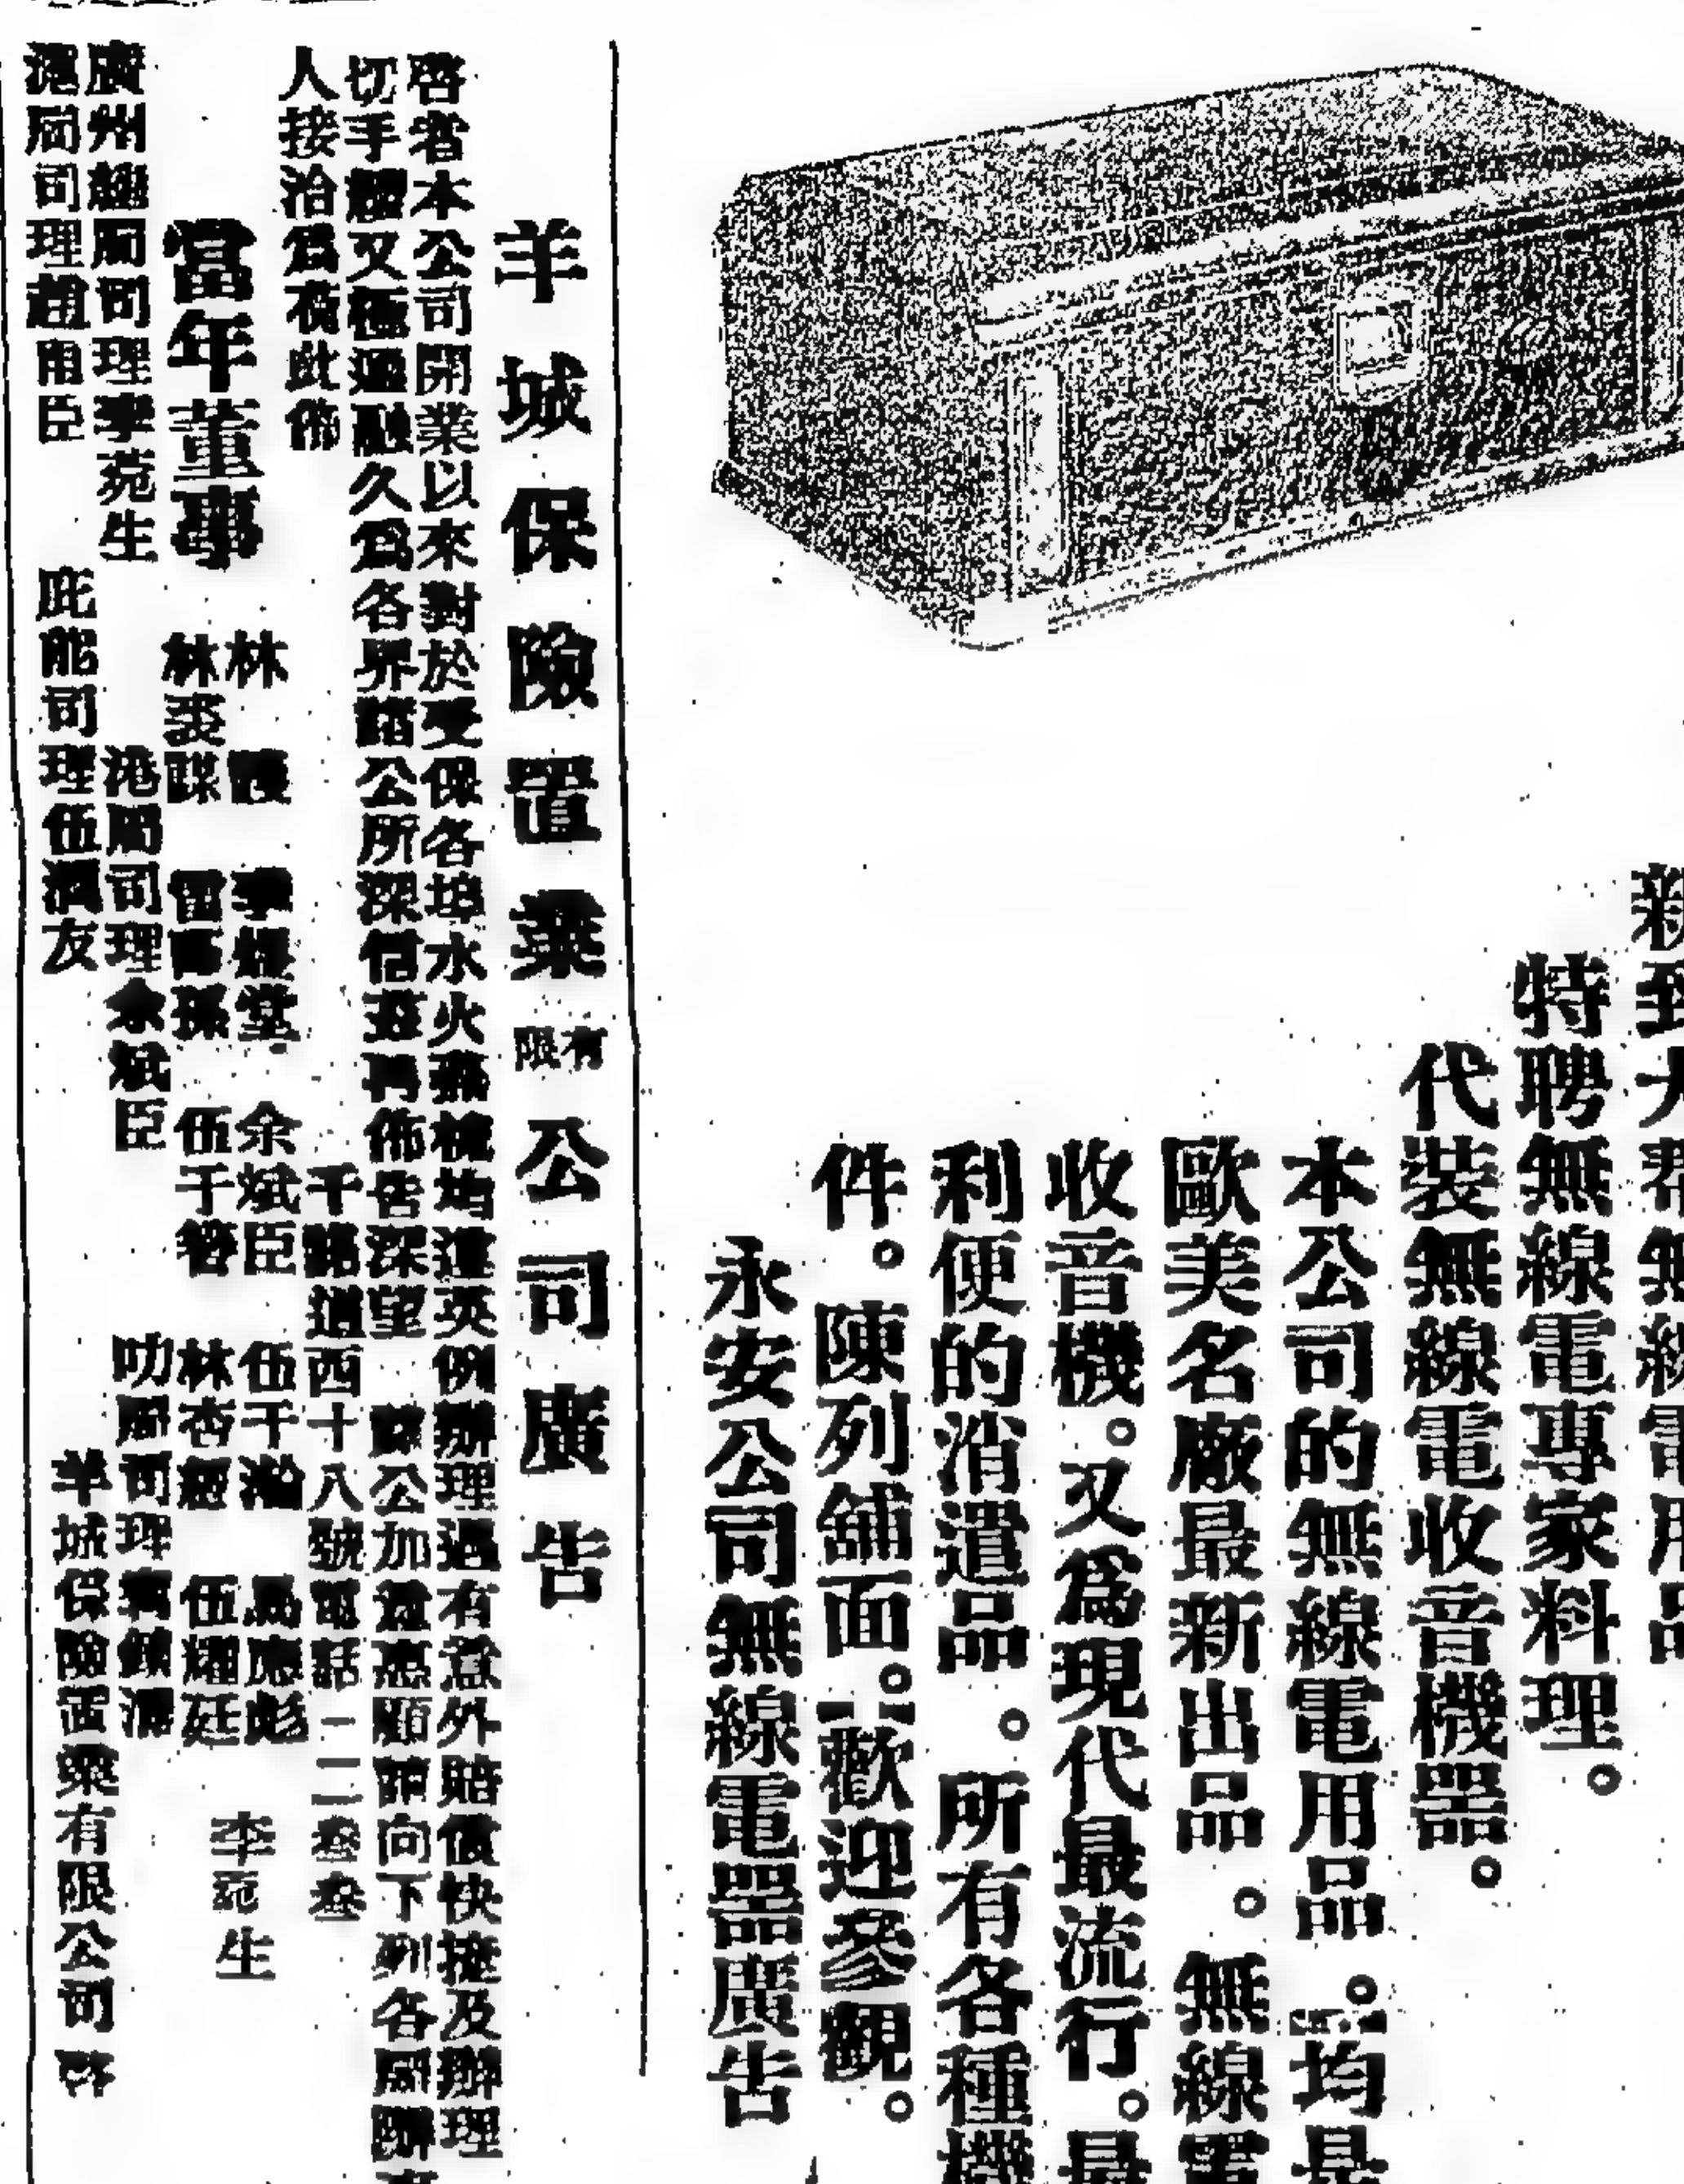 新到大帮無線電用品
特聘無線電專家料理。
代裝無線電收音機器。
本公司的無線電用品。均是
歐美名廠最新出品。無線電
收音機。又爲現代最流行。最
利便的消遣品。所有各種機
件。陳列舖面。歡迎參觀。
永安公司無線電器廣告
羊城保險置業有限公司廣告
啓者本公司開業以來對於受保各埠水火燕梳均遵英例辦理遇有意外賠償快捷及辦理
切手續又極通融久爲各界諸公所深信茲再佈告深望 諸公加意惠顧請向下列各局辦事
人接洽爲荷此佈
干諾道西十八號電話二二叁叁
當年董事
林護 李煜堂 余斌臣 伍于瀚 馬應彪
林裘謀 雷蔭蓀 伍于簪 林杏 伍耀廷
李菀生
廣州總局司理李菀生 港局司理余斌臣 叻局司理
滬局司理趙甫臣 庇能司理伍潤友
羊城保險置業有限公司啓